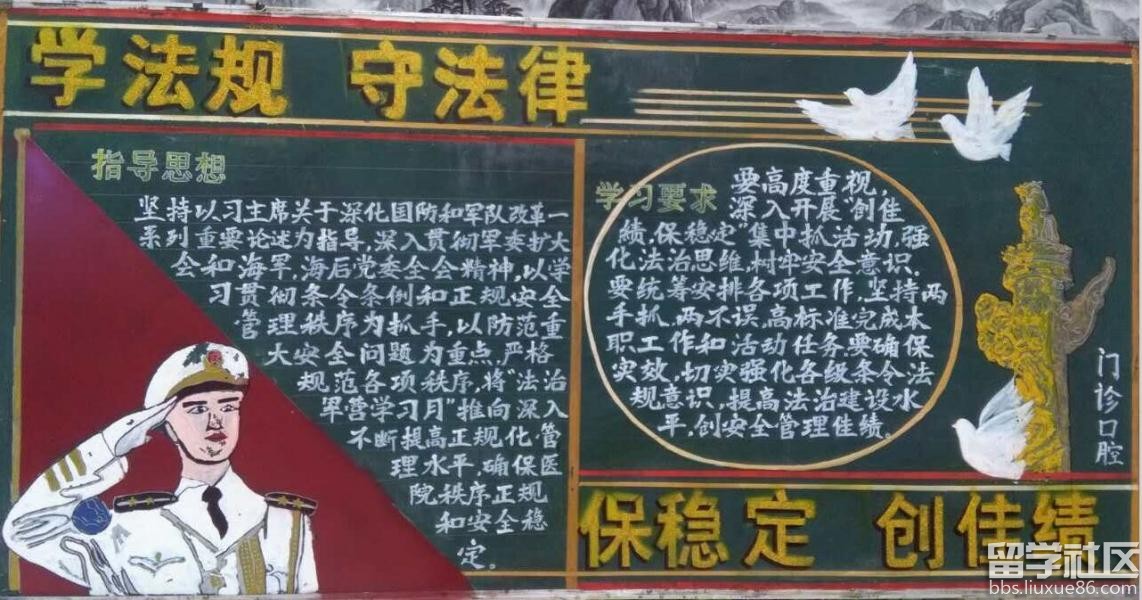 学法规 守法律
指导思想
坚持以习主席关于深化国防和军队改革一
系列重要论述为指导,深入贯彻军委扩大
会和海军,海后党委全会精神,以学
习贯彻条令条例和正规安全
管理秩序为抓手,以防范重
大安全问题为重点,严格
规范各项秩序,将“法治
军营学习月”推向深入
不断提高正规化管
理水平,确保医
院秩序正规
和安全稳
定。
学习要求
要高度重视,
深入开展“创佳
绩,保稳定”集中抓活动,强
化法治思维,树牢安全意识.
要统筹安排各项工作,坚持两
手抓,两不误,高标准完成本
职工作和活动任务.要确保
实效,切实强化各级条令法
规意识,提高法治建设水
平,创安全管理佳绩。
门诊口腔
保稳定 创佳绩
留学社区
bbs.liuxue86.com